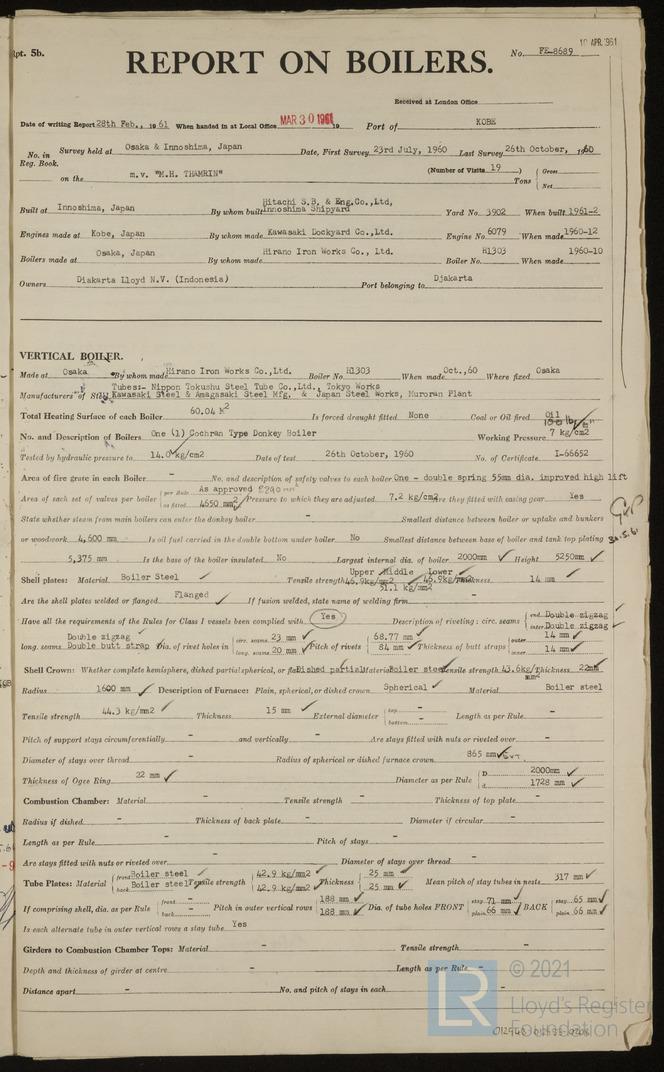 Rpt. 5b.
10 APR 1961
No. FE-8689
REPORT ON BOILERS.
Received at London Office
Date of writing Report 28th Feb., 1961 When handed in at Local Office MAR 30 1961 19 Port of KOBE
No. in Reg. Book. Survey held at Osaka & Innoshima, Japan Date, First Survey 23rd July, 1960 Last Survey 26th October, 1960
on the m.v. "M.H. THAMRIN" (Number of Visits 19 ) Tons Gross Net
Built at Innoshima, Japan By whom built Hitachi S.B. & Eng.Co.,Ltd, Innoshima Shipyard Yard No. 3902 When built 1961-2
Engines made at Kobe, Japan By whom made Kawasaki Dockyard Co.,Ltd. Engine No. 6079 When made 1960-12
Boilers made at Osaka, Japan By whom made Hirano Iron Works Co., Ltd. Boiler No. H1303 When made 1960-10
Owners Djakarta Lloyd N.V. (Indonesia) Port belonging to Djakarta
VERTICAL BOILER.
Made at Osaka By whom made Hirano Iron Works Co.,Ltd. Boiler No. H1303 When made Oct.,60 Where fixed Osaka
Tubes:- Nippon Tokushu Steel Tube Co.,Ltd., Tokyo Works
Manufacturers of Steel Kawasaki Steel & Amagasaki Steel Mfg. & Japan Steel Works, Muroran Plant
Total Heating Surface of each Boiler 60.04 M2 Is forced draught fitted None Coal or Oil fired Oil
No. and Description of Boilers One (1) Cochran Type Donkey Boiler Working Pressure 7 kg/cm2
Tested by hydraulic pressure to 14.0 kg/cm2 Date of test 26th October, 1960 No. of Certificate I-66652
Area of fire grate in each Boiler - No. and description of safety valves to each boiler One - double spring 55mm dia. improved high lift
Area of each set of valves per boiler per Rule As approved as fitted 4650 mm2 Pressure to which they are adjusted 7.2 kg/cm2 Are they fitted with easing gear Yes
State whether steam from main boilers can enter the donkey boiler - Smallest distance between boiler or uptake and bunkers
or woodwork 4,600 mm Is oil fuel carried in the double bottom under boiler No Smallest distance between base of boiler and tank top plating
5,375 mm Is the base of the boiler insulated No Largest internal dia. of boiler 2000mm Height 5250mm
Shell plates: Material Boiler Steel Tensile strength Upper 46.9kg/mm2 Middle 51.1 kg/mm2 Lower 46.9kg/mm2 Thickness 14 mm
Are the shell plates welded or flanged Flanged If fusion welded, state name of welding firm
Have all the requirements of the Rules for Class I vessels been complied with Yes Description of riveting: circ. seams end Double zigzag inter. Double zigzag
long. seams Double zigzag Double butt strap Dia. of rivet holes in circ. seams 23 mm long. seams 20 mm Pitch of rivets 68.77 mm 84 mm Thickness of butt straps outer 14 mm inner 14 mm
Shell Crown: Whether complete hemisphere, dished partial spherical, or flat Dished partial Material Boiler steel Tensile strength 43.6kg/mm2 Thickness 22mm
Radius 1600 mm Description of Furnace: Plain, spherical, or dished crown Spherical Material Boiler steel
Tensile strength 44.3 kg/mm2 Thickness 15 mm External diameter top - bottom - Length as per Rule -
Pitch of support stays circumferentially - and vertically - Are stays fitted with nuts or riveted over -
Diameter of stays over thread - Radius of spherical or dished furnace crown 865 mm
Thickness of Ogee Ring 22 mm Diameter as per Rule D 2000mm d 1728 mm
Combustion Chamber: Material - Tensile strength - Thickness of top plate -
Radius if dished - Thickness of back plate - Diameter if circular -
Length as per Rule - Pitch of stays -
Are stays fitted with nuts or riveted over - Diameter of stays over thread -
Tube Plates: Material front Boiler steel back Boiler steel Tensile strength 42.9 kg/mm2 42.9 kg/mm2 Thickness 25 mm 25 mm Mean pitch of stay tubes in nests 317 mm
If comprising shell, dia. as per Rule front - back - Pitch in outer vertical rows 188 mm 188 mm Dia. of tube holes FRONT stay 71 mm plain 66 mm BACK stay 65 mm plain 66 mm
Is each alternate tube in outer vertical rows a stay tube Yes
Girders to Combustion Chamber Tops: Material - Tensile strength -
Depth and thickness of girder at centre - Length as per Rule -
Distance apart - No. and pitch of stays in each -
LR © 2021
Lloyd's Register
Foundation